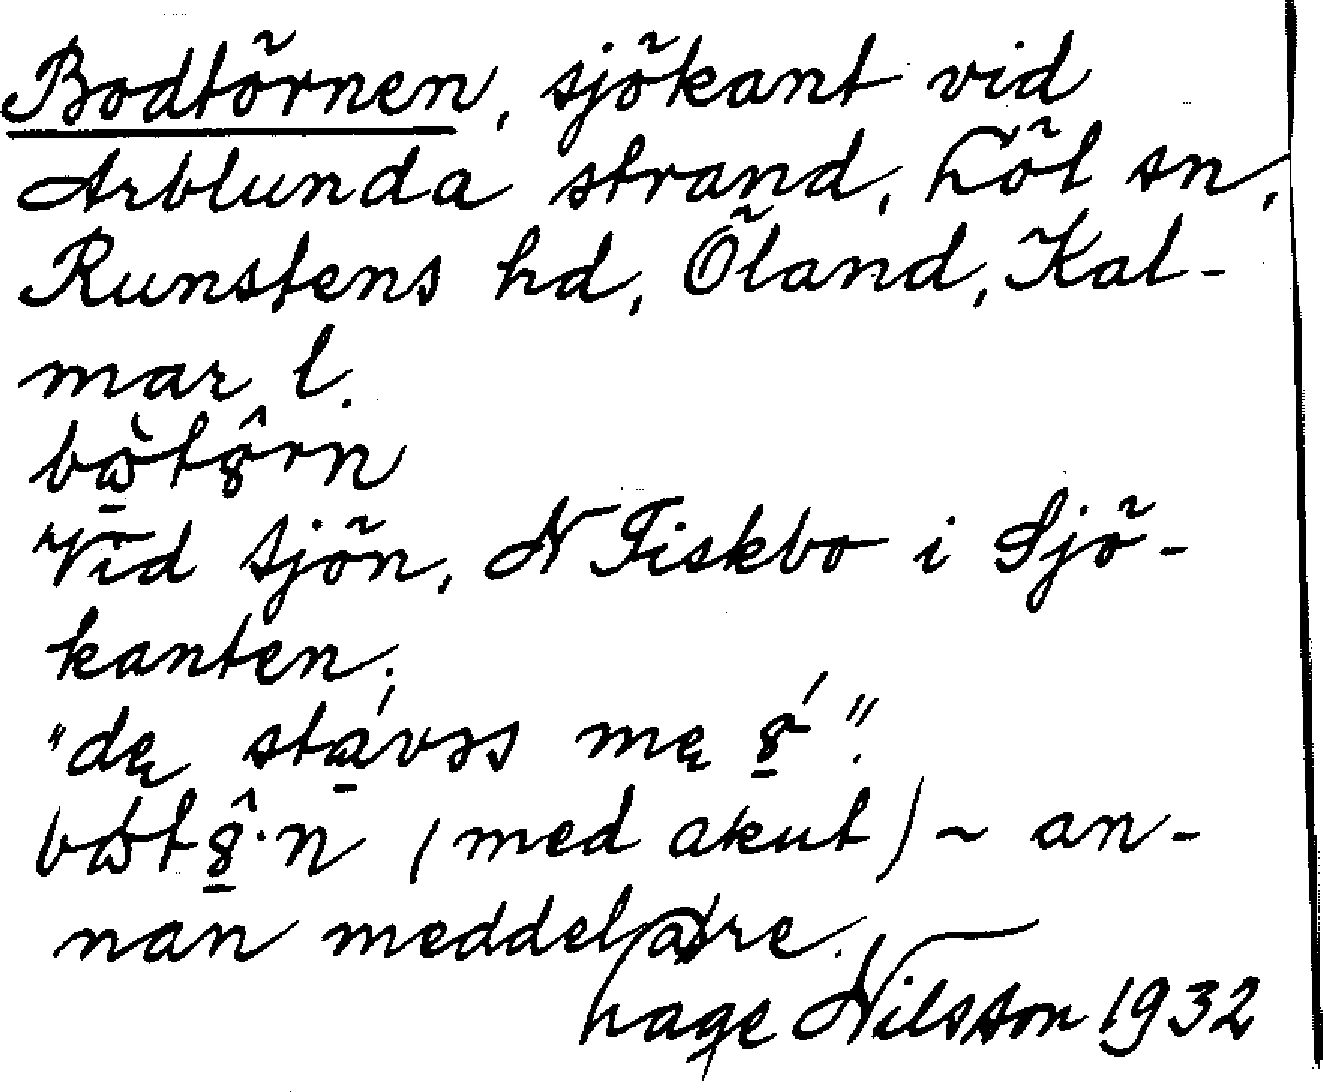 Bodtörnen, sjökant vid
Arblunda strand, Löt sn,
Runstens hd, Öland, Kal-
mar l.
Vid sjön, N Fiskbo i Sjö-
kanten.
"dę stávəs mę 8́".
(med akut) ~ an-
nan meddelare.
Nilsson 1932